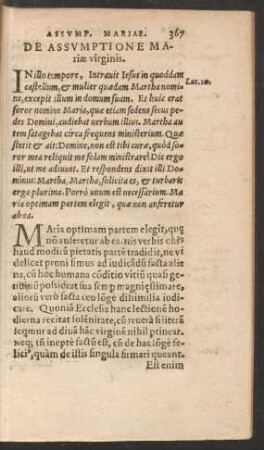 ASSVMP. MARIAE. 367
DE ASSVMPTIONE MA-
riæ virginis.
IN illo tempore, Intrauit Iesus in quoddā
castellum, & mulier quædam Martha nomi- Luc.10.
ne, excepit illum in domum suam. Et huic erat
soror nomine Maria, quæ etiam sedens secus pe-
des Domini, audiebat verbum illius. Martha au
tem satagebat circa frequens ministerium. Quæ
stetit & ait: Domine, non est tibi curæ, quòd so-
ror mea reliquit me solam ministrare? Dic er-
go illi, ut me adiuuet. Et respondens dixit illi Do
minus: Martha, Martha, solicita es, & turbaris
erga plurima. Porrò unum est necessarium. Ma
ria optimam partem elegit, quæ non auferetur
ab ea.
MAria optimam partem elegit, quę
nō auferetur ab ea. His verbis chrĩ
haud modicū pietatis parte tradidit, ne vi
delicet proni simus ad iudicādū facta alie
na, cū hoc humana cōditio vitiū quasi ge-
nuinū possideat sua semp magni ęstimare,
aliorū verò facta ceu lōgè dissimilia iudi-
care. Quoniā Ecclesia hanc lectionē ho-
dierna recitat solēnitate, cū reuerà si literā
seqmur ad diuā hāc virginē nihil ptineat.
Neq; tñ ineptè factū est, cū de hac lōgè fe-
lici', quàm de istis singula firmari queant.
Est enim